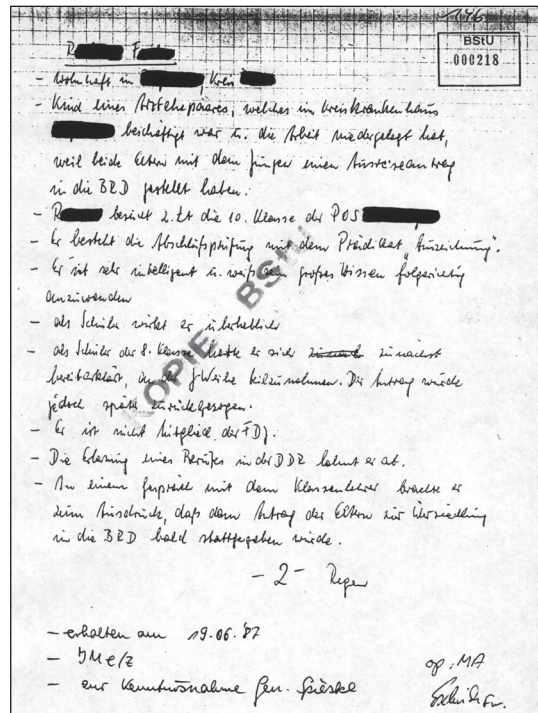 146
BStU
000218
R F
- wohnhaft in , Kreis
- Kind eines Arztehepaares, welches im Kreiskrankenhaus
beschäftigt war u. die Arbeit niedergelegt hat,
weil beide Eltern mit dem Jungen einen Ausreiseantrag
in die BRD gestellt haben.
- R besucht z. Zt die 10. Klasse der POS
- Er besteht die Abschlußprüfung mit dem Prädikat "Auszeichnung".
- Er ist sehr intelligent u. weiß sein großes Wissen folgerichtig
anzuwenden
- als Schüler wirkt er überheblich
- als Schüler der 8. Klasse hatte er sich zunächst
bereiterklärt, an der JWeihe teilzunehmen. Der Antrag wurde
jedoch später zurückgezogen.
- Er ist nicht Mitglied der FDJ.
- Die Erlernung eines Berufes in der DDR lehnt er ab.
- In einem Gespräch mit dem Klassenlehrer brachte er
zum Ausdruck, daß dem Antrag der Eltern zur Übersiedlung
in die BRD bald stattgegeben würde.
- 2 -
- erhalten am 19.06.'87
- IMe/z
- zur Kenntnisnahme Gen.
op. MA
KOPIE BStU